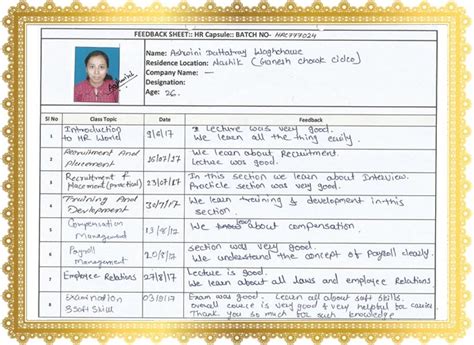 FEEDBACK SHEET:: HR Capsule:: BATCH NO- HRC777024
Name: Ashwini Dattatray Waghchawe
Residence Location: Nashik (Ganesh chowk cidco)
Company Name: —
Designation:
Age: 26.
Sl No Class Topic Date Feedback
1 Introduction to HR World 9/6/17 Lecture was very good.
We learn all the thing easily.
2 Recruitment And placement 16/07/17 We learn about Recruitment.
Lecture was good.
3 Recruitment & Placement (practical) 23/07/17 In this section we learn about Interview.
Practicle section was very good.
4 Training And Devlopment 30/7/17 We learn training & devlopment in this section.
5 Compensation Management 13/8/17 We learn about compensation
6 Payroll Management 20/8/17 section was very good.
We understand the concept of Payroll clearly.
7 Employee Relations 27/8/17 Lecture is good.
We learn about all laws and employee Relations
8 Examination & Soft Skill 03/9/17 Exam was good. Learn all about soft skills.
overall course is very good & very helpful for carrier
Thank you so much for such knowledge